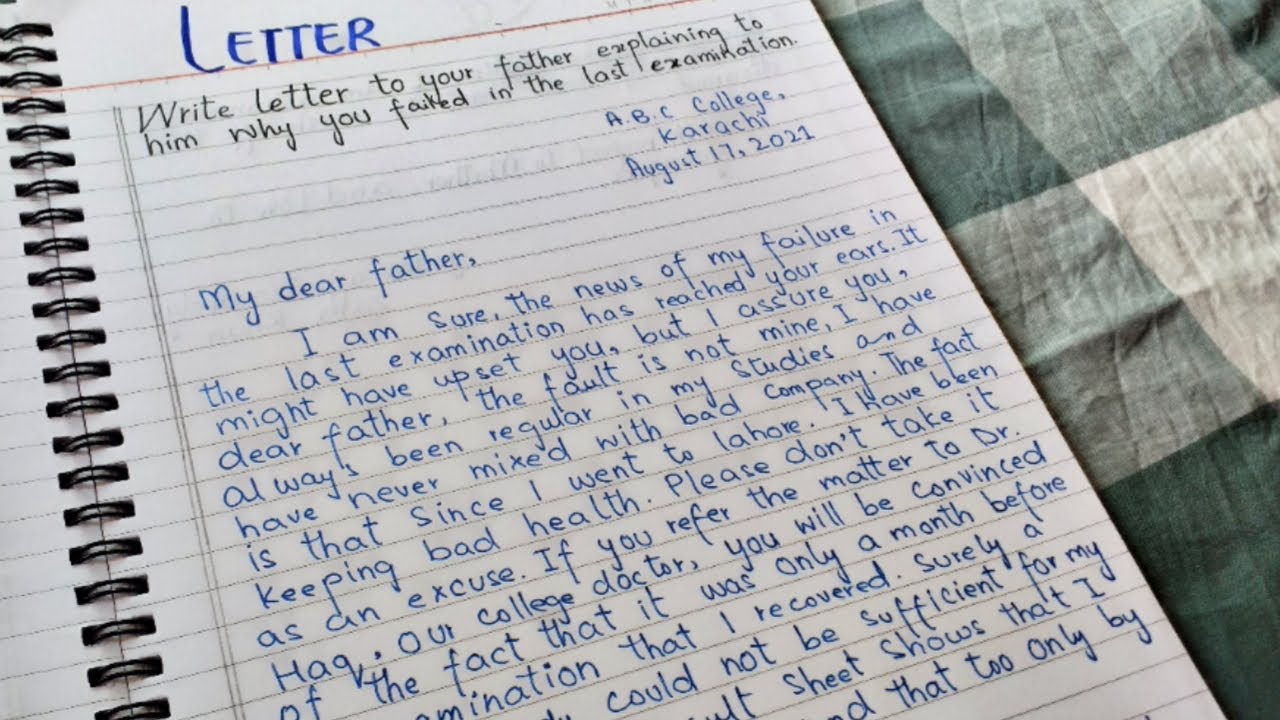 LETTER
Write letter to your father explaining to
him why you failed in the last examination.
A.B.C College,
Karachi
August 17, 2021
My dear father,
I am sure, the news of my failure in
the last examination has reached your ears. It
might have upset you, but I assure you,
dear father, the fault is not mine, I have
always been regular in my studies and
have never mixed with bad company. The fact
is that since I went to lahore. I have been
keeping bad health. Please don't take it
as an excuse. If you refer the matter to Dr.
Haq, our college doctor, you will be convinced
of the fact that it was only a month before
amination that I recovered. Surely a
could not be sufficient for my
sheet shows that I
and that too only by